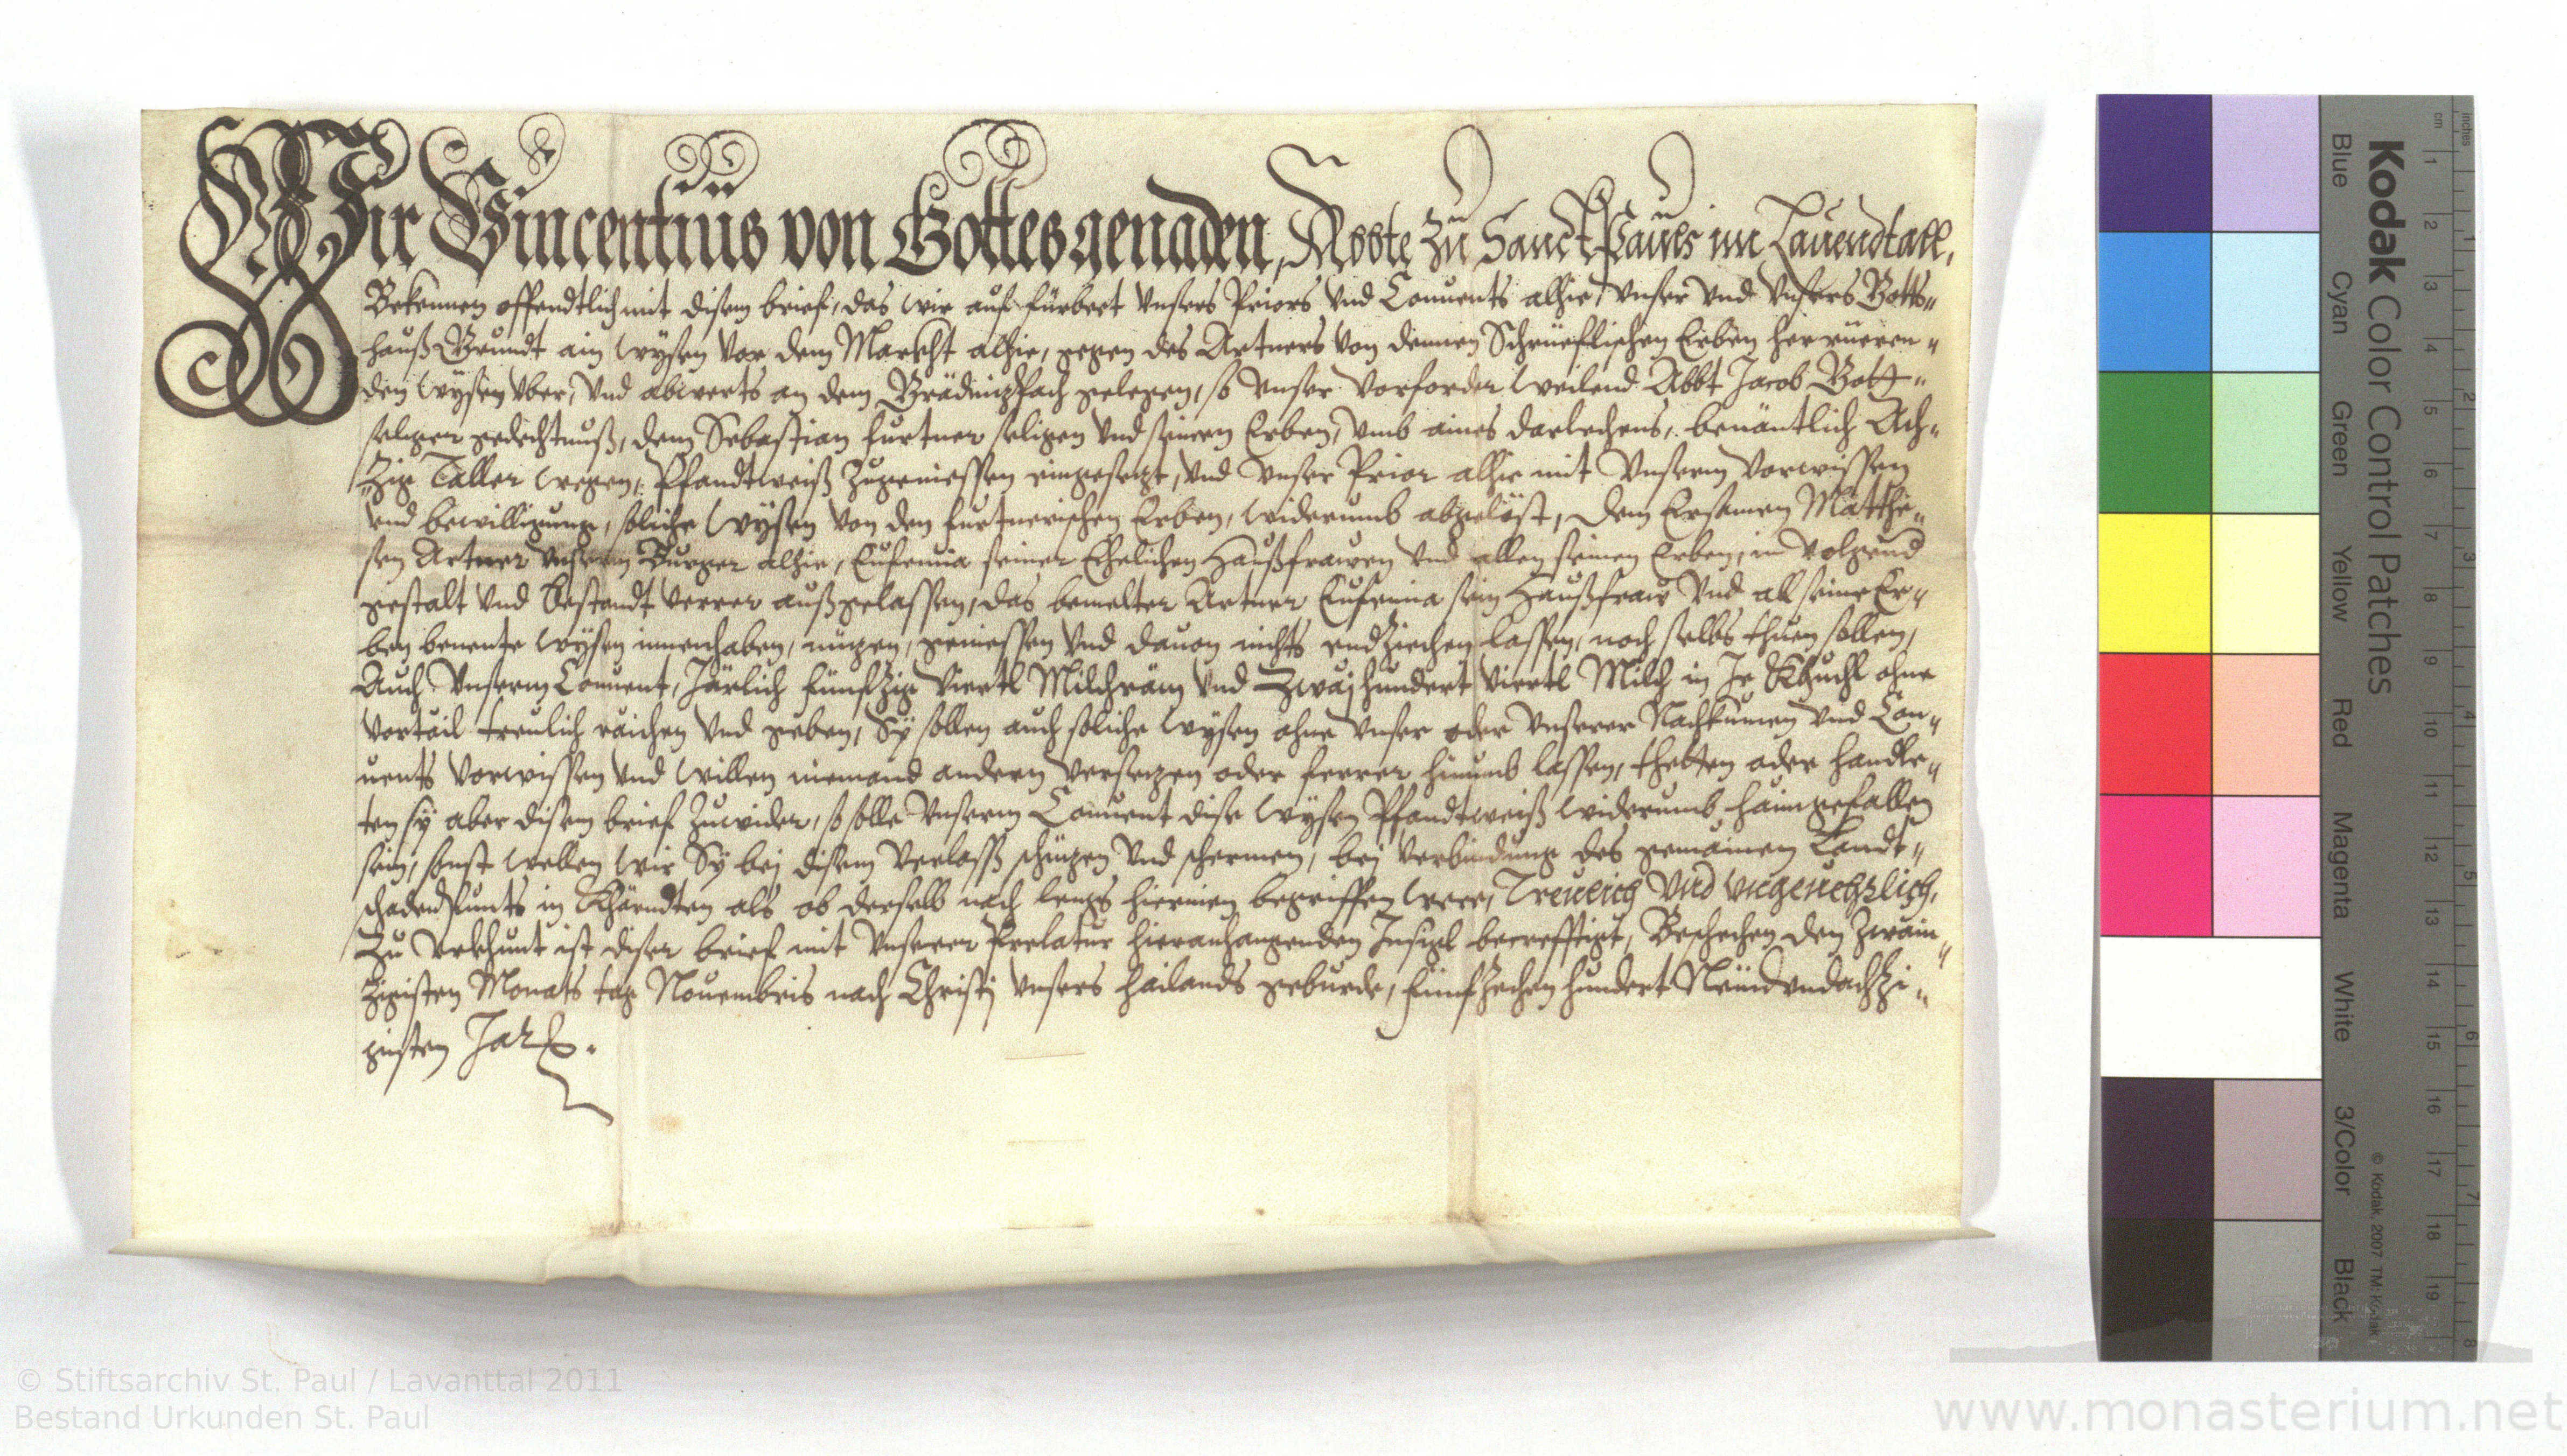 Wir Vincentius von Gottes genaden, Abbte zu Sanct Pauls im Lauendtall,
Bekennen offendtlich mit disem brief, das wir auf fürbeet Vnsers Priors Vnd Conuents alhie, Vnser Vnd Vnsers Gotts„
hauß Grundt ain Wÿsen Vor dem Markht alhie, gegen des Artners Von dennen Schrueflischen Erben herrueren„
den Wÿsen Vber, Vnd abwerts an dem gelegen, so Vnser Vorforder Weilend Abbt Jacob Gott„
seliger gedechtnuß, dem Sebastian furtner seligen Vnd seinen Erben, Vmb aines darlechens, benäntlich Ach„
„Zig Taller wegen, Pfandtweiß Zugeniessen eingesezt, Vnd Vnser Prior alhie mit Vnserm Vorwissen
Vnd bewilligung, soliche Wÿsen Von den furtnerischen Erben, Widerumb abgelöst, dem Ersamen Matthe„
sen Artner Vnserm Burger alhie, Eufemia seiner Ehelichen Haußfrawen Vnd allen seinen Erben, in Volgend
gestalt Vnd Bestandt Verrer außgelassen, das bemelter Artner Eufemia sein Haußfraw Vnd all seine Er„
ben benente Wÿsen innenhaben, nüzen, geniessen Vnd dauon nichts endziechen lassen, noch selbs thuen sollen,
Auch Vnserm Conuent, Järlich fünfzig Viertl Milchräm Vnd Zwaj hundert Viertl Milch in Ir Khuchl ohne
Vortail treulich raichen Vnd geben, Sÿ sollen auch soliche Wÿsen ohne Vnser oder Vnserer Nachkumen Vnd Con„
uents Vorwissen Vnd Willen niemand andern Versezen oder ferrer hinumb lassen, thetten oder handle„
ten sÿ aber disem brief Zuwider, so solle Vnserm Conuent dise Wÿsen Pfandtweiß widerumb haimgefallen
sein, sonst wellen Wir Sÿ bej disem Verlaß schüzen Vnd schermen, bej Verbindung des gemainen Landt„
schadenpunts in Khärndten als ob derselb nach lengs hierinen begriffen were, Treulich Vnd Vngeuehrlich,
Zu Vrkhunt ist diser brief mit Vnserer Prelatur hieranhangenden Insigl becrefftigt, Beschehen den Zwain„
Zigisten Monats tag Nouembris nach Christj Vnsers hailands geburde, fünfzechen hundert Neündundachzi„
gisten Jar.
© Stiftsarchiv St. Paul / Lavanttal 2011
Bestand Urkunden St. Paul
www.monasterium.net
Kodak Color Control Patches
Blue Cyan Green Yellow Red Magenta White 3/Color Black
© Kodak, 2007 TM: Kodak
cm 1 2 3 4 5 6 7 8 9 10 11 12 13 14 15 16 17 18 19
inches 1 2 3 4 5 6 7 8